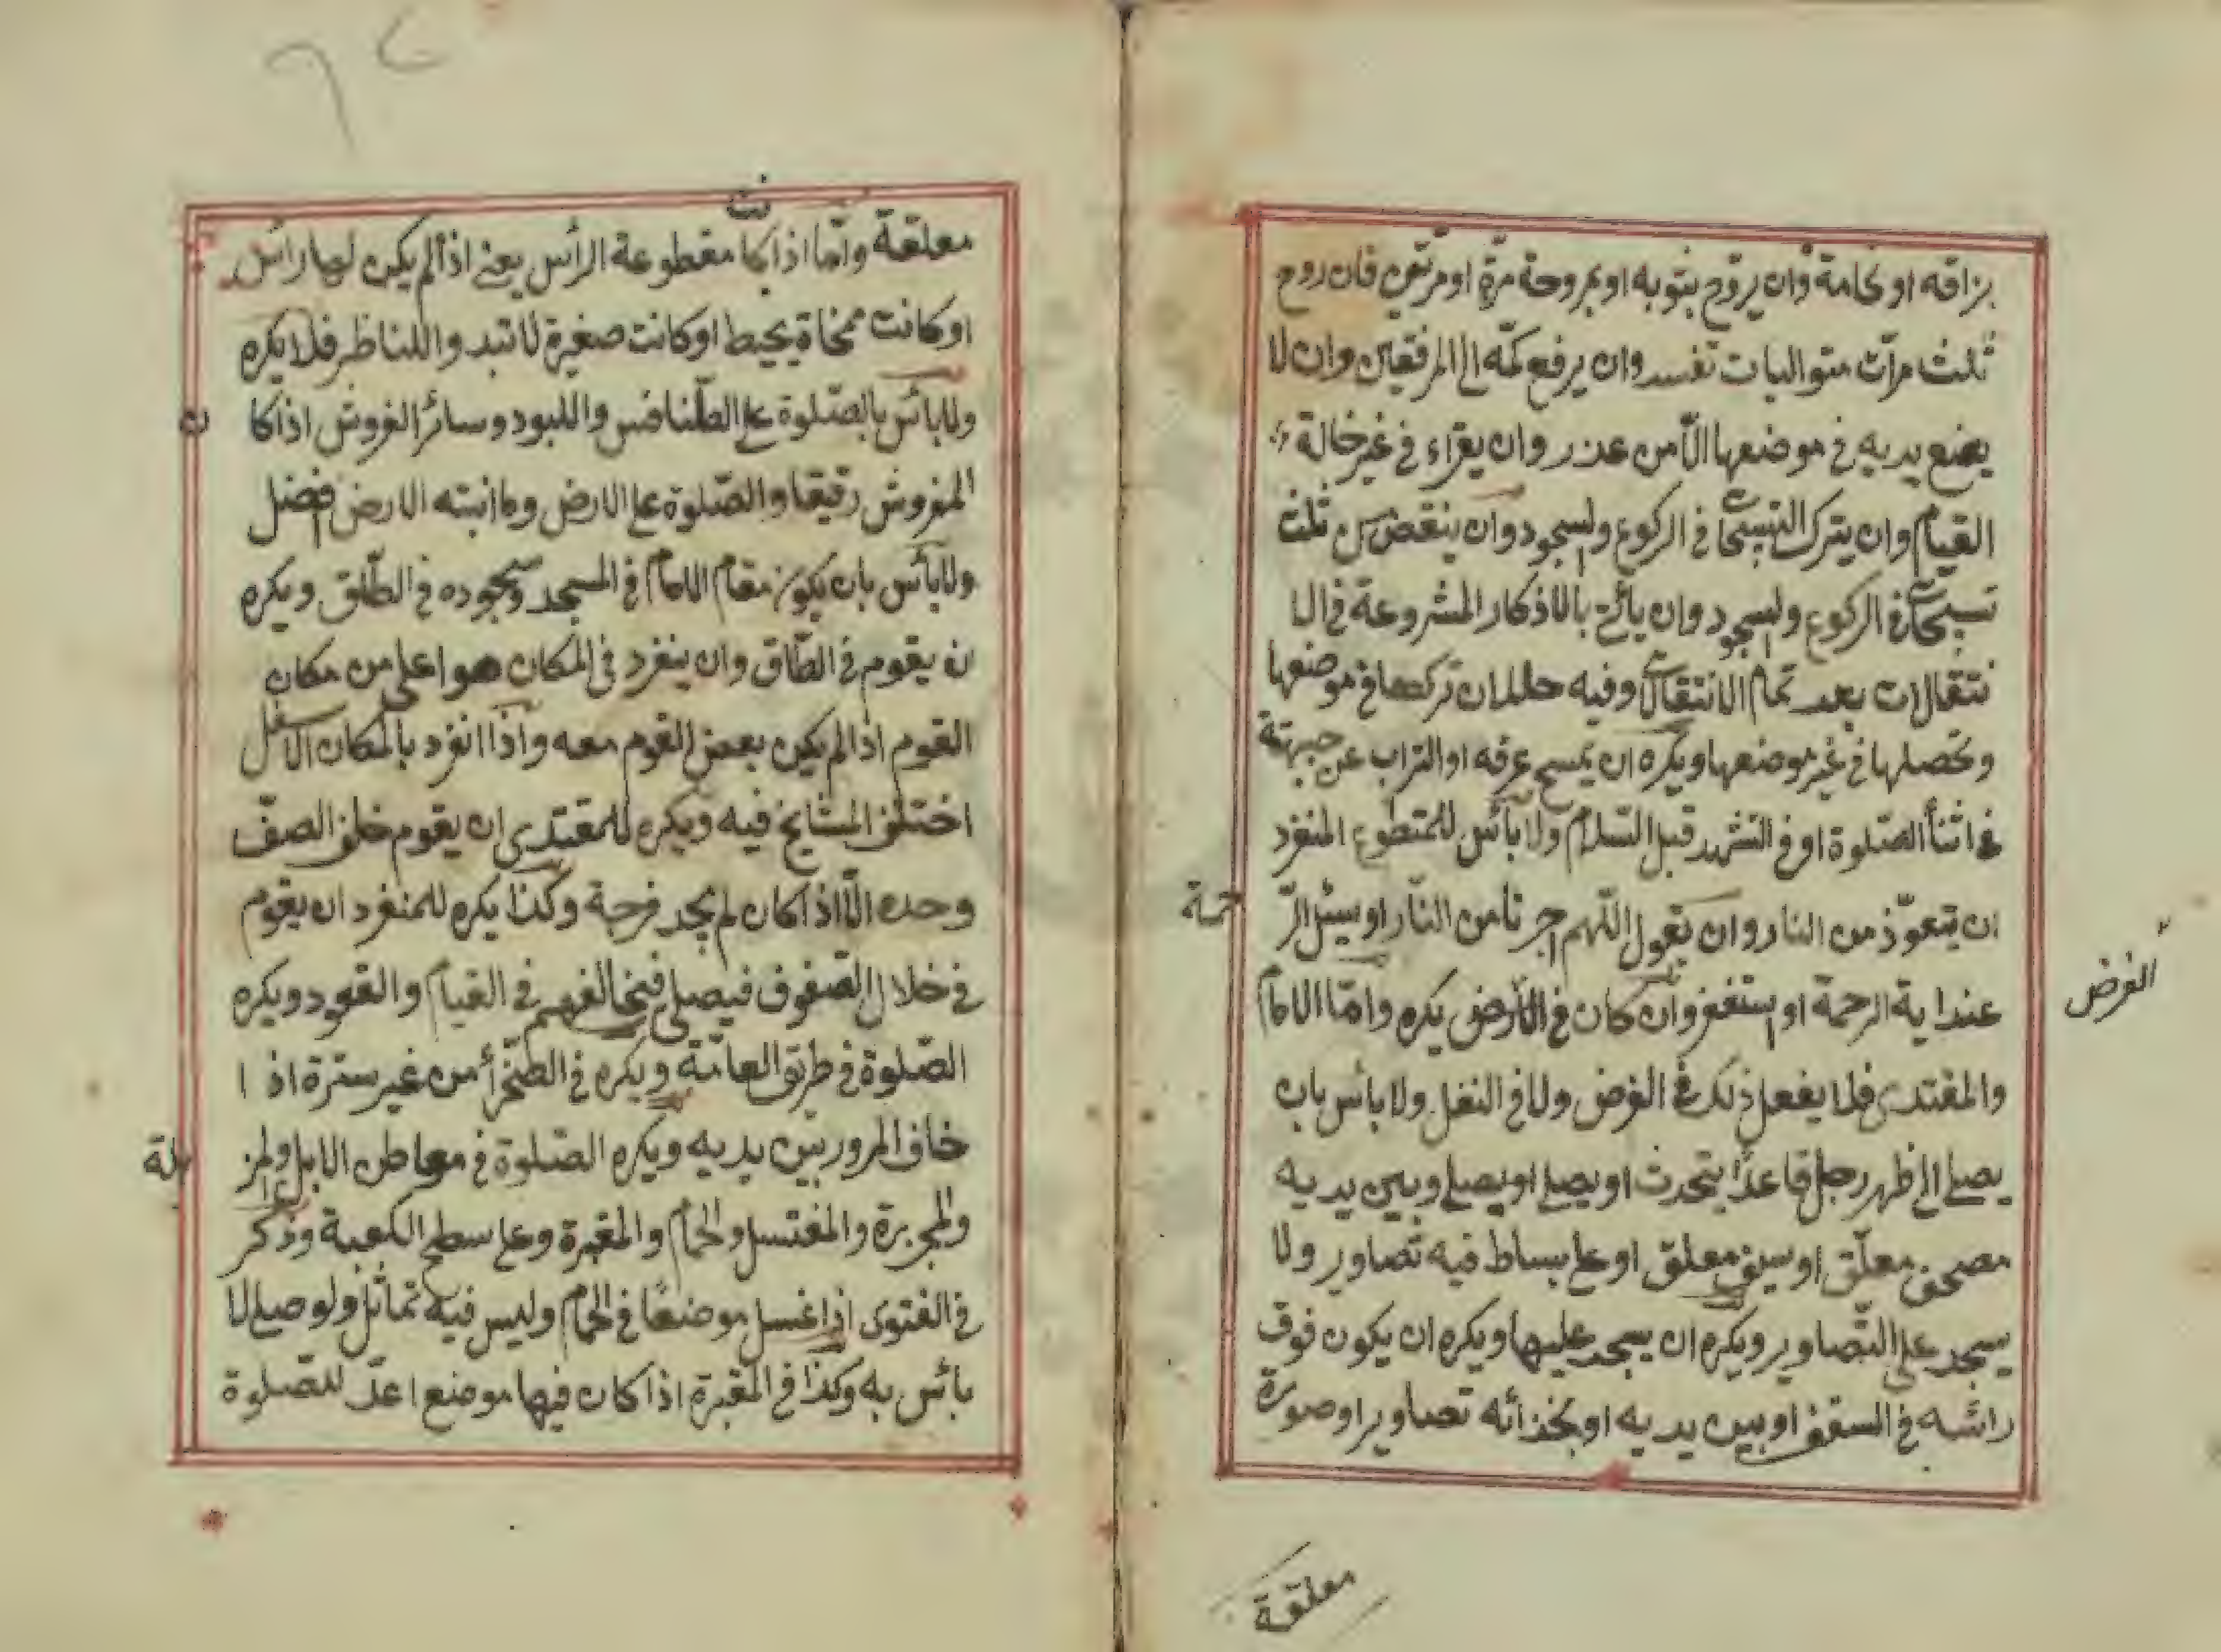 بزاقه او نخامة وان يروح بثوبه او بمروحة مرّة او مرّتين فان روح
ثلث مرّات متواليات تفسد وان يرفع كمّه الى المرفقين وان لا
يضع يديه فى موضعها الّا من عذر وان يقراء فى غير حالة
القيام وان يترك التسبيحات فى الركوع والسجود وان ينقص من ثلث
تسبيحات فى الركوع والسجود وان يأتى بالاذكار المشروعة فى الا
نتقالات بعد تمام الانتقالات وفيه خللان تركها فى موضعها
وتحصلها فى غير موضعها ويكره ان يمسح عرقه او التراب عن جبهته
فى اثنأ الصّلوة او فى التشهد قبل السّلام ولا بأس للمتطوع المنفرد
ان يتعوّذ من النار وان يقول اللّهم اجرنا من النّار او يسئل الرّ
حمة
عند اية الرحمة او استغفر وان كان فى الأرض يكره وامّا الامام
الفرض
والمقتدى فلا يفعل ذلك فى الفرض ولا فى النفل ولا بأس بان
يصلى الى ظهر رجل قاعدًا يتحدث او يصلى او يصلى وبين يديه
مصحف معلّق او سيف معلّق او على بساط فيه تصاوير ولا
يسجد على التّصاوير ويكره ان يسجد عليها ويكره ان يكون فوق
رائسه فى السقف او بين يديه او بحذائه تصاوير او صورة
معلقة
معلقة وامّا اذا كانت مقطوعة الرأس يعنى اذا لم يكن لها رائس
او كانت ممحاة بخيط او كانت صغيرة لا تبدوا للناظر فلا يكره
ولا بأس بالصّلوة على الطّنافس واللبود وسائر الفروش اذا كا
ن
المفروش رقيقا والصّلوة على الارض وما انبته الارض افضل
ولا بأس بان يكون مقام الامام فى المسجد وسجوده فى الطّاق ويكره
ان يقوم فى الطّاق وان ينفرد فى المكان هو اعلى من مكان
القوم اذا لم يكن بعض القوم معه واذا انفرد بالمكان الاسفل
اختلف المشايخ فيه ويكره للمقتدى ان يقوم خلف الصفّ
وحده الّا اذا كان لم يجد فرجة وكذا يكره للمنفرد ان يقوم
فى خلال الصّفوف فيصلى فيخالفهم فى القيام والقعود ويكره
الصّلوة فى طريق العامّة ويكره فى الصّحرأ من غير سترة اذا
خاف المرور بين يديه ويكره الصّلوة فى معاطن الابل والمز
بلة
والمجزرة والمغتسل والحمام والمقبرة وعلى سطح الكعبة وذكر
فى الفتوى اذا غسل موضعًا فى الحمام وليس فيه تماثل ولو صلى لا
بائس به وكذا فى المقبرة اذا كان فيها موضع اعدّ للصّلوة